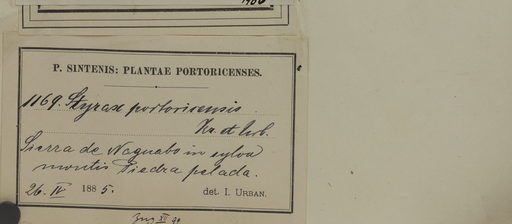 P. SINTENIS: PLANTAE PORTORICENSES.
1169. Styrax portoricensis
Kr. et Urb.
Sierra de Naguabo in sylva
montis Piedra pelada.
26. IV 1885. det. I. URBAN.